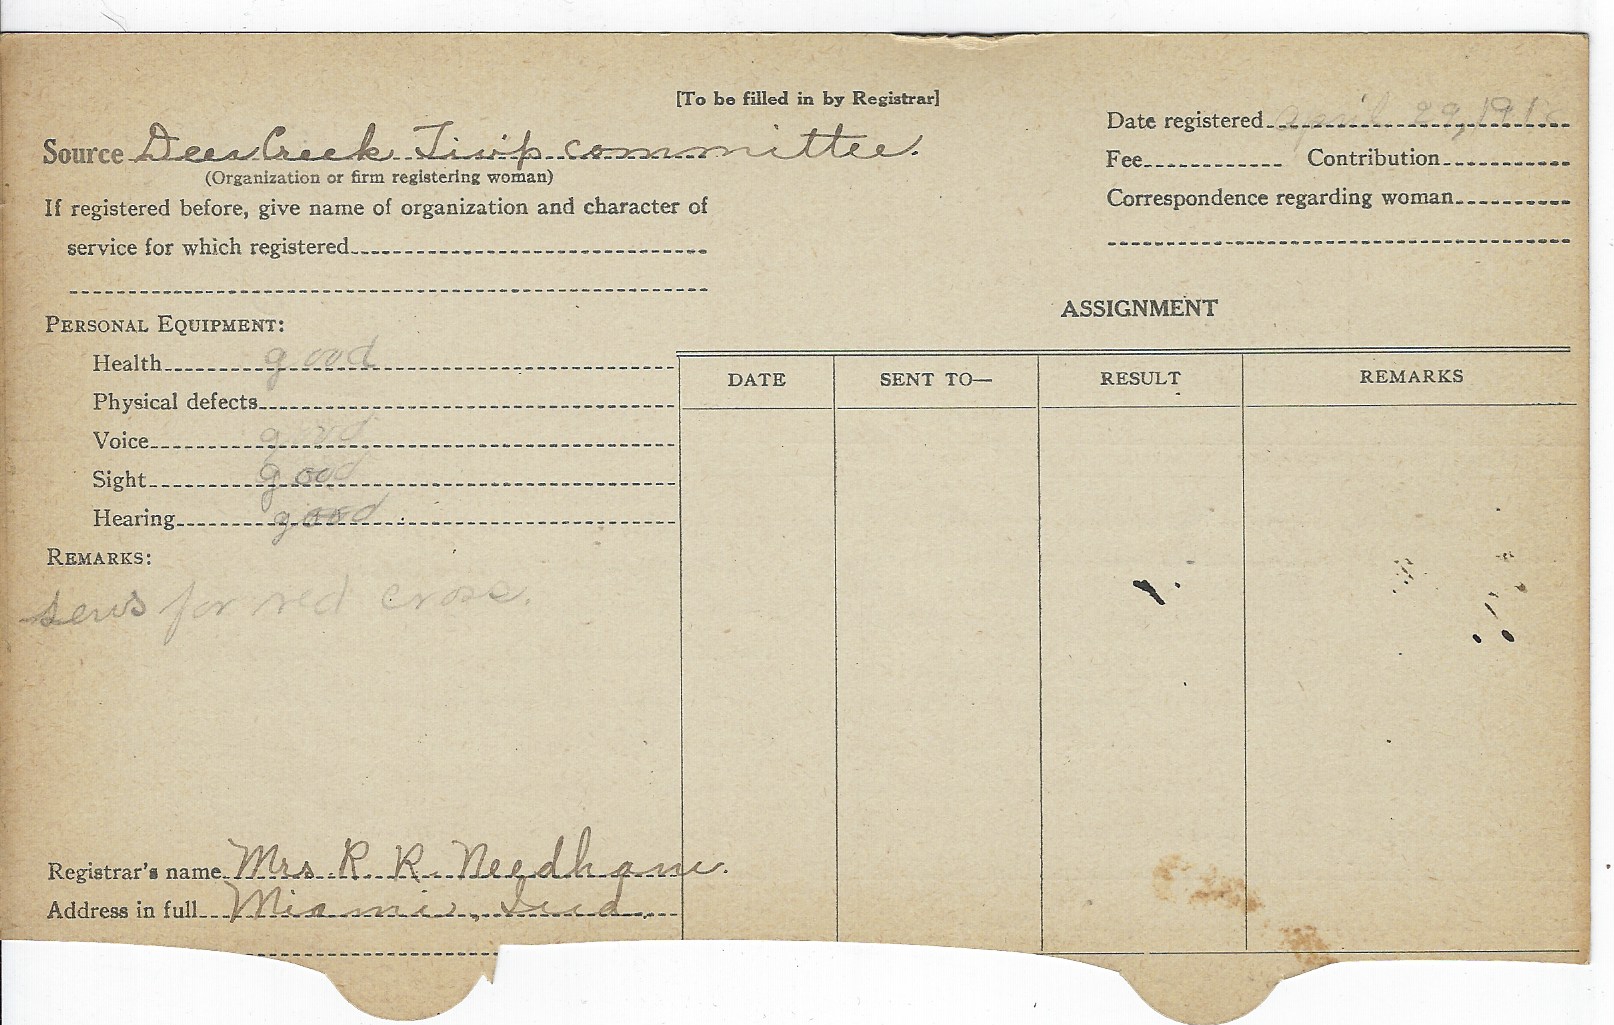 [To be filled in by Registrar]
Source Deer Creek Twp committee.
(Organization or firm registering woman)
If registered before, give name of organization and character of
service for which registered
Date registered April 29, 1918
Fee Contribution
Correspondence regarding woman
PERSONAL EQUIPMENT:
Health good
Physical defects
Voice good
Sight good
Hearing good
REMARKS:
sews for red cross.
ASSIGNMENT
DATE SENT TO— RESULT REMARKS
Registrar's name Mrs. R. R. Needham.
Address in full Miami, Ind.